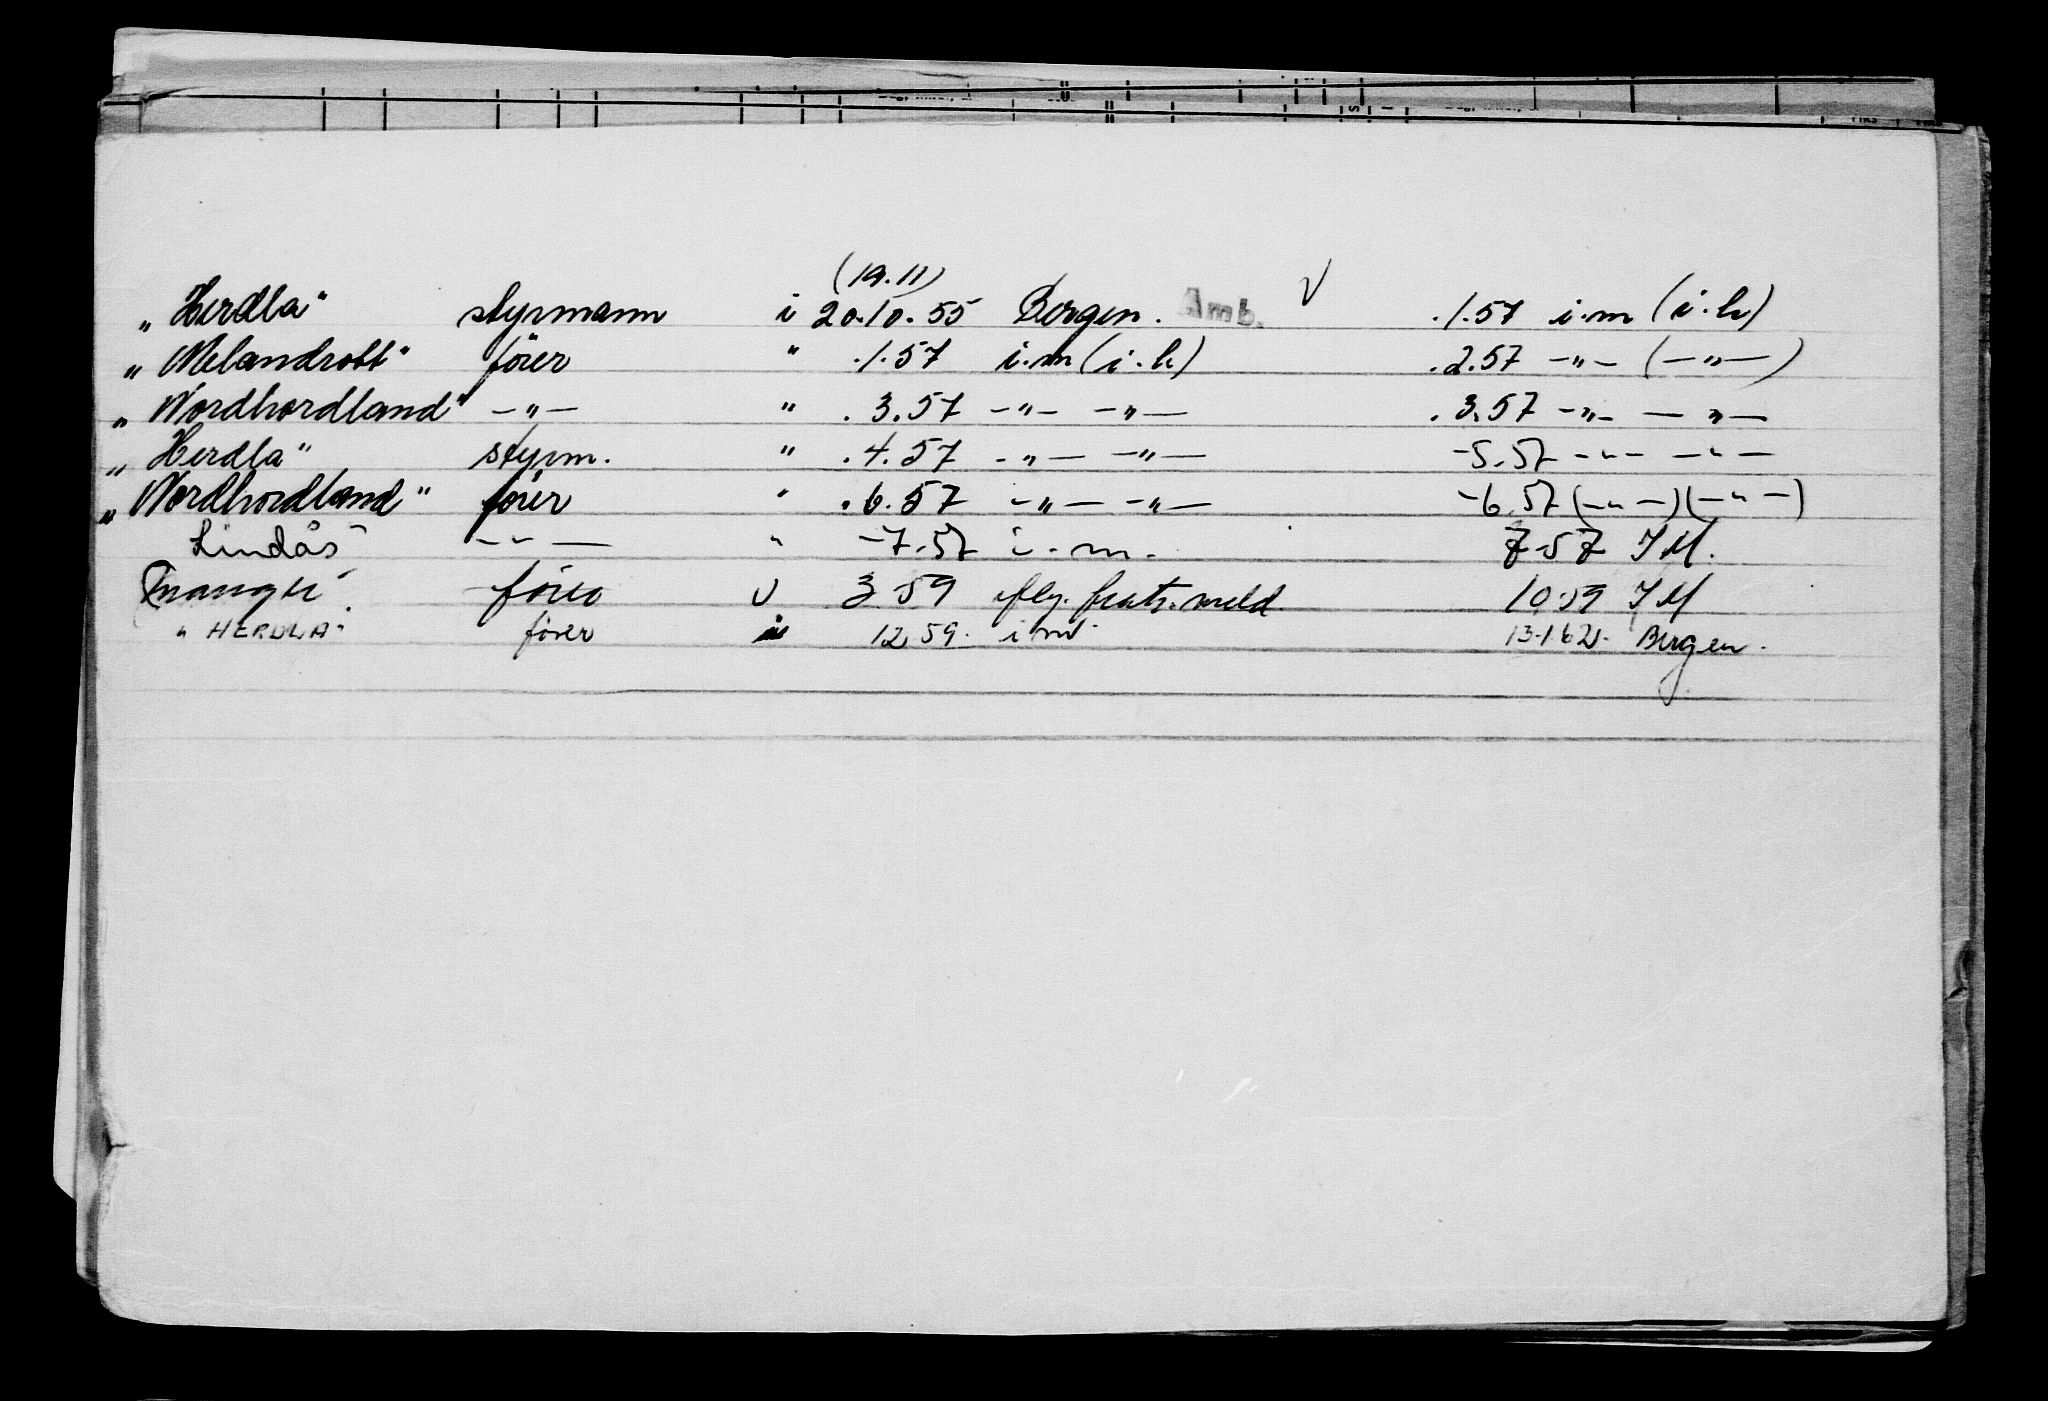 (19.11)
„Herdla" styrmann i 20.10.55 Bergen. Amb. √ .1.57 i.m (i.h)
„Melandrott" förer " .1.57 i.m (i.h) .2.57 -"- (-"-)
„Nordhordland" -"- " .3.57 -"- -"- .3.57 -"- -"-
„Herdla" styrm. " .4.57 -"- -"- -5.57 -"- -"-
„Nordhordland" förer " .6.57 -"- -"- -6.57 (-"-) (-"-)
Lindås" -"- " -7.57 i.m. 7.57 IM.
Manger förer 3 59 flg. fratr. meld. 10.59 IM
"HERDLA" förer i 12 59. im 13.1 62. Bergen.